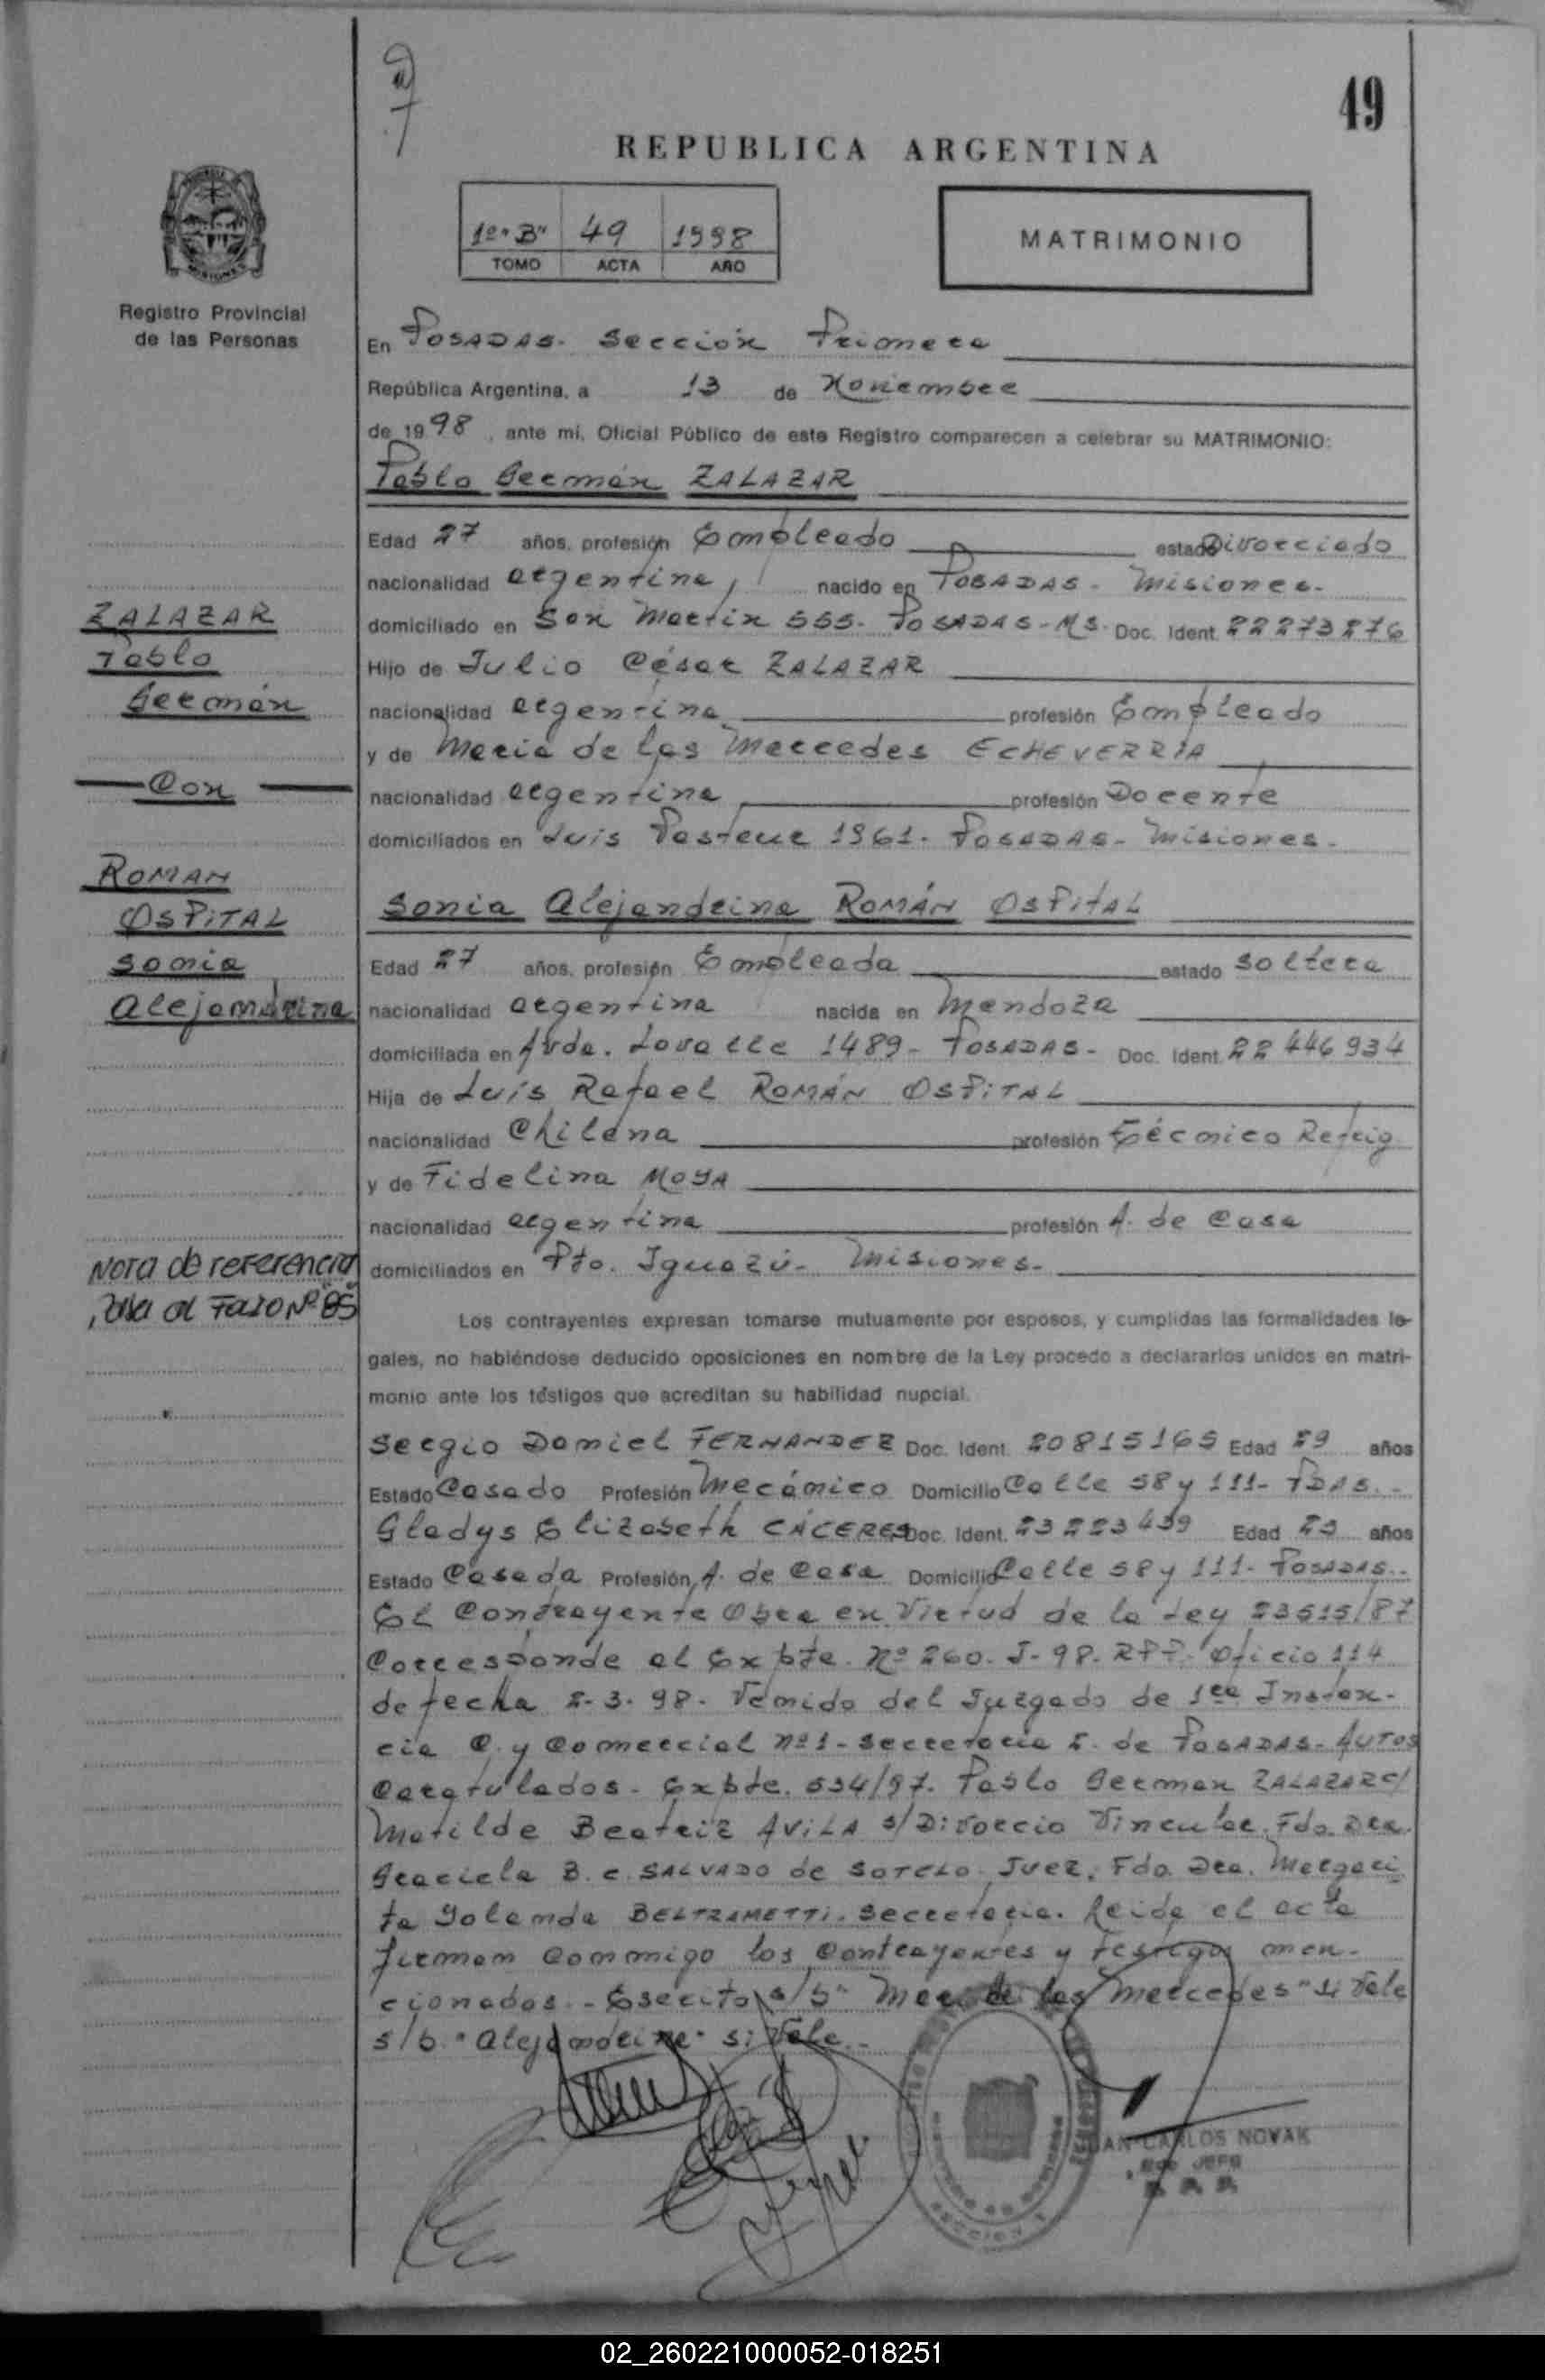 49
REPUBLICA ARGENTINA
1º "B" 49 1998
TOMO ACTA AÑO
MATRIMONIO
Registro Provincial
de las Personas
En POSADAS. Sección Primera
República Argentina, a 13 de Noviembre
de 1998, ante mí, Oficial Público de este Registro comparecen a celebrar su MATRIMONIO:
Pablo Germán ZALAZAR
Edad 27 años, profesión Empleado estado Divorciado
nacionalidad argentina, nacido en POSADAS - Misiones.
domiciliado en San Martín 555. POSADAS - MS. Doc. Ident. 22273276
Hijo de Julio César ZALAZAR
nacionalidad argentina profesión Empleado
y de María de las Mercedes ECHEVERRÍA
nacionalidad argentina profesión Docente
domiciliados en Luis Pasteur 1961. POSADAS - Misiones.
Sonia Alejandrina ROMÁN OSPITAL
Edad 27 años, profesión Empleada estado soltera
nacionalidad argentina nacida en Mendoza
domiciliada en Avda. Lavalle 1489 - POSADAS - Doc. Ident. 22446934
Hija de Luis Rafael ROMÁN OSPITAL
nacionalidad Chilena profesión Técnico Refrig
y de Fidelina MOYA
nacionalidad argentina profesión A. de Casa
domiciliados en Pto. Iguazú - Misiones.
ZALAZAR
Pablo
Germán
Con
ROMAN
OSPITAL
Sonia
Alejandrina
Nota de referencia
pasa al Folio Nº "85"
Los contrayentes expresan tomarse mutuamente por esposos, y cumplidas las formalidades le-
gales, no habiéndose deducido oposiciones en nombre de la Ley procedo a declararlos unidos en matri-
monio ante los testigos que acreditan su habilidad nupcial.
Sergio Daniel FERNANDEZ Doc. Ident. 20815165 Edad 29 años
Estado Casado Profesión Mecánico Domicilio Calle 58 y 111 - PDAS.
Gladys Elizabeth CÁCERES Doc. Ident. 23223439 Edad 25 años
Estado Casada Profesión A. de Casa Domicilio Calle 58 y 111 - POSADAS.
El Contrayente Obra en Virtud de la Ley 23515/87
Corresponde al Expte. Nº 260. J- 98. RPP. Oficio 114
de fecha 2-3-98. Venido del Juzgado de 1ra Instan-
cia C. y Comercial nº 1 - Secretaría 2. de POSADAS - AUTOS
Caratulados - Expte. 534/97. Pablo German ZALAZAR c/
Matilde Beatriz AVILA s/ Divorcio Vincular. Fdo. Dra.
Graciela B. C. SALVADO de SOTELO Juez. Fdo. Dra. Margari
ta Yolanda BELTRAMETTI. Secretaria. Leída el acta
firman conmigo los Contrayentes y testigos men-
cionados. - Escrito s/b " María de las Mercedes" si Vale
s/b. "Alejandrina" si Vale.
JUAN CARLOS NOVAK
JEFE
02_260221000052-018251